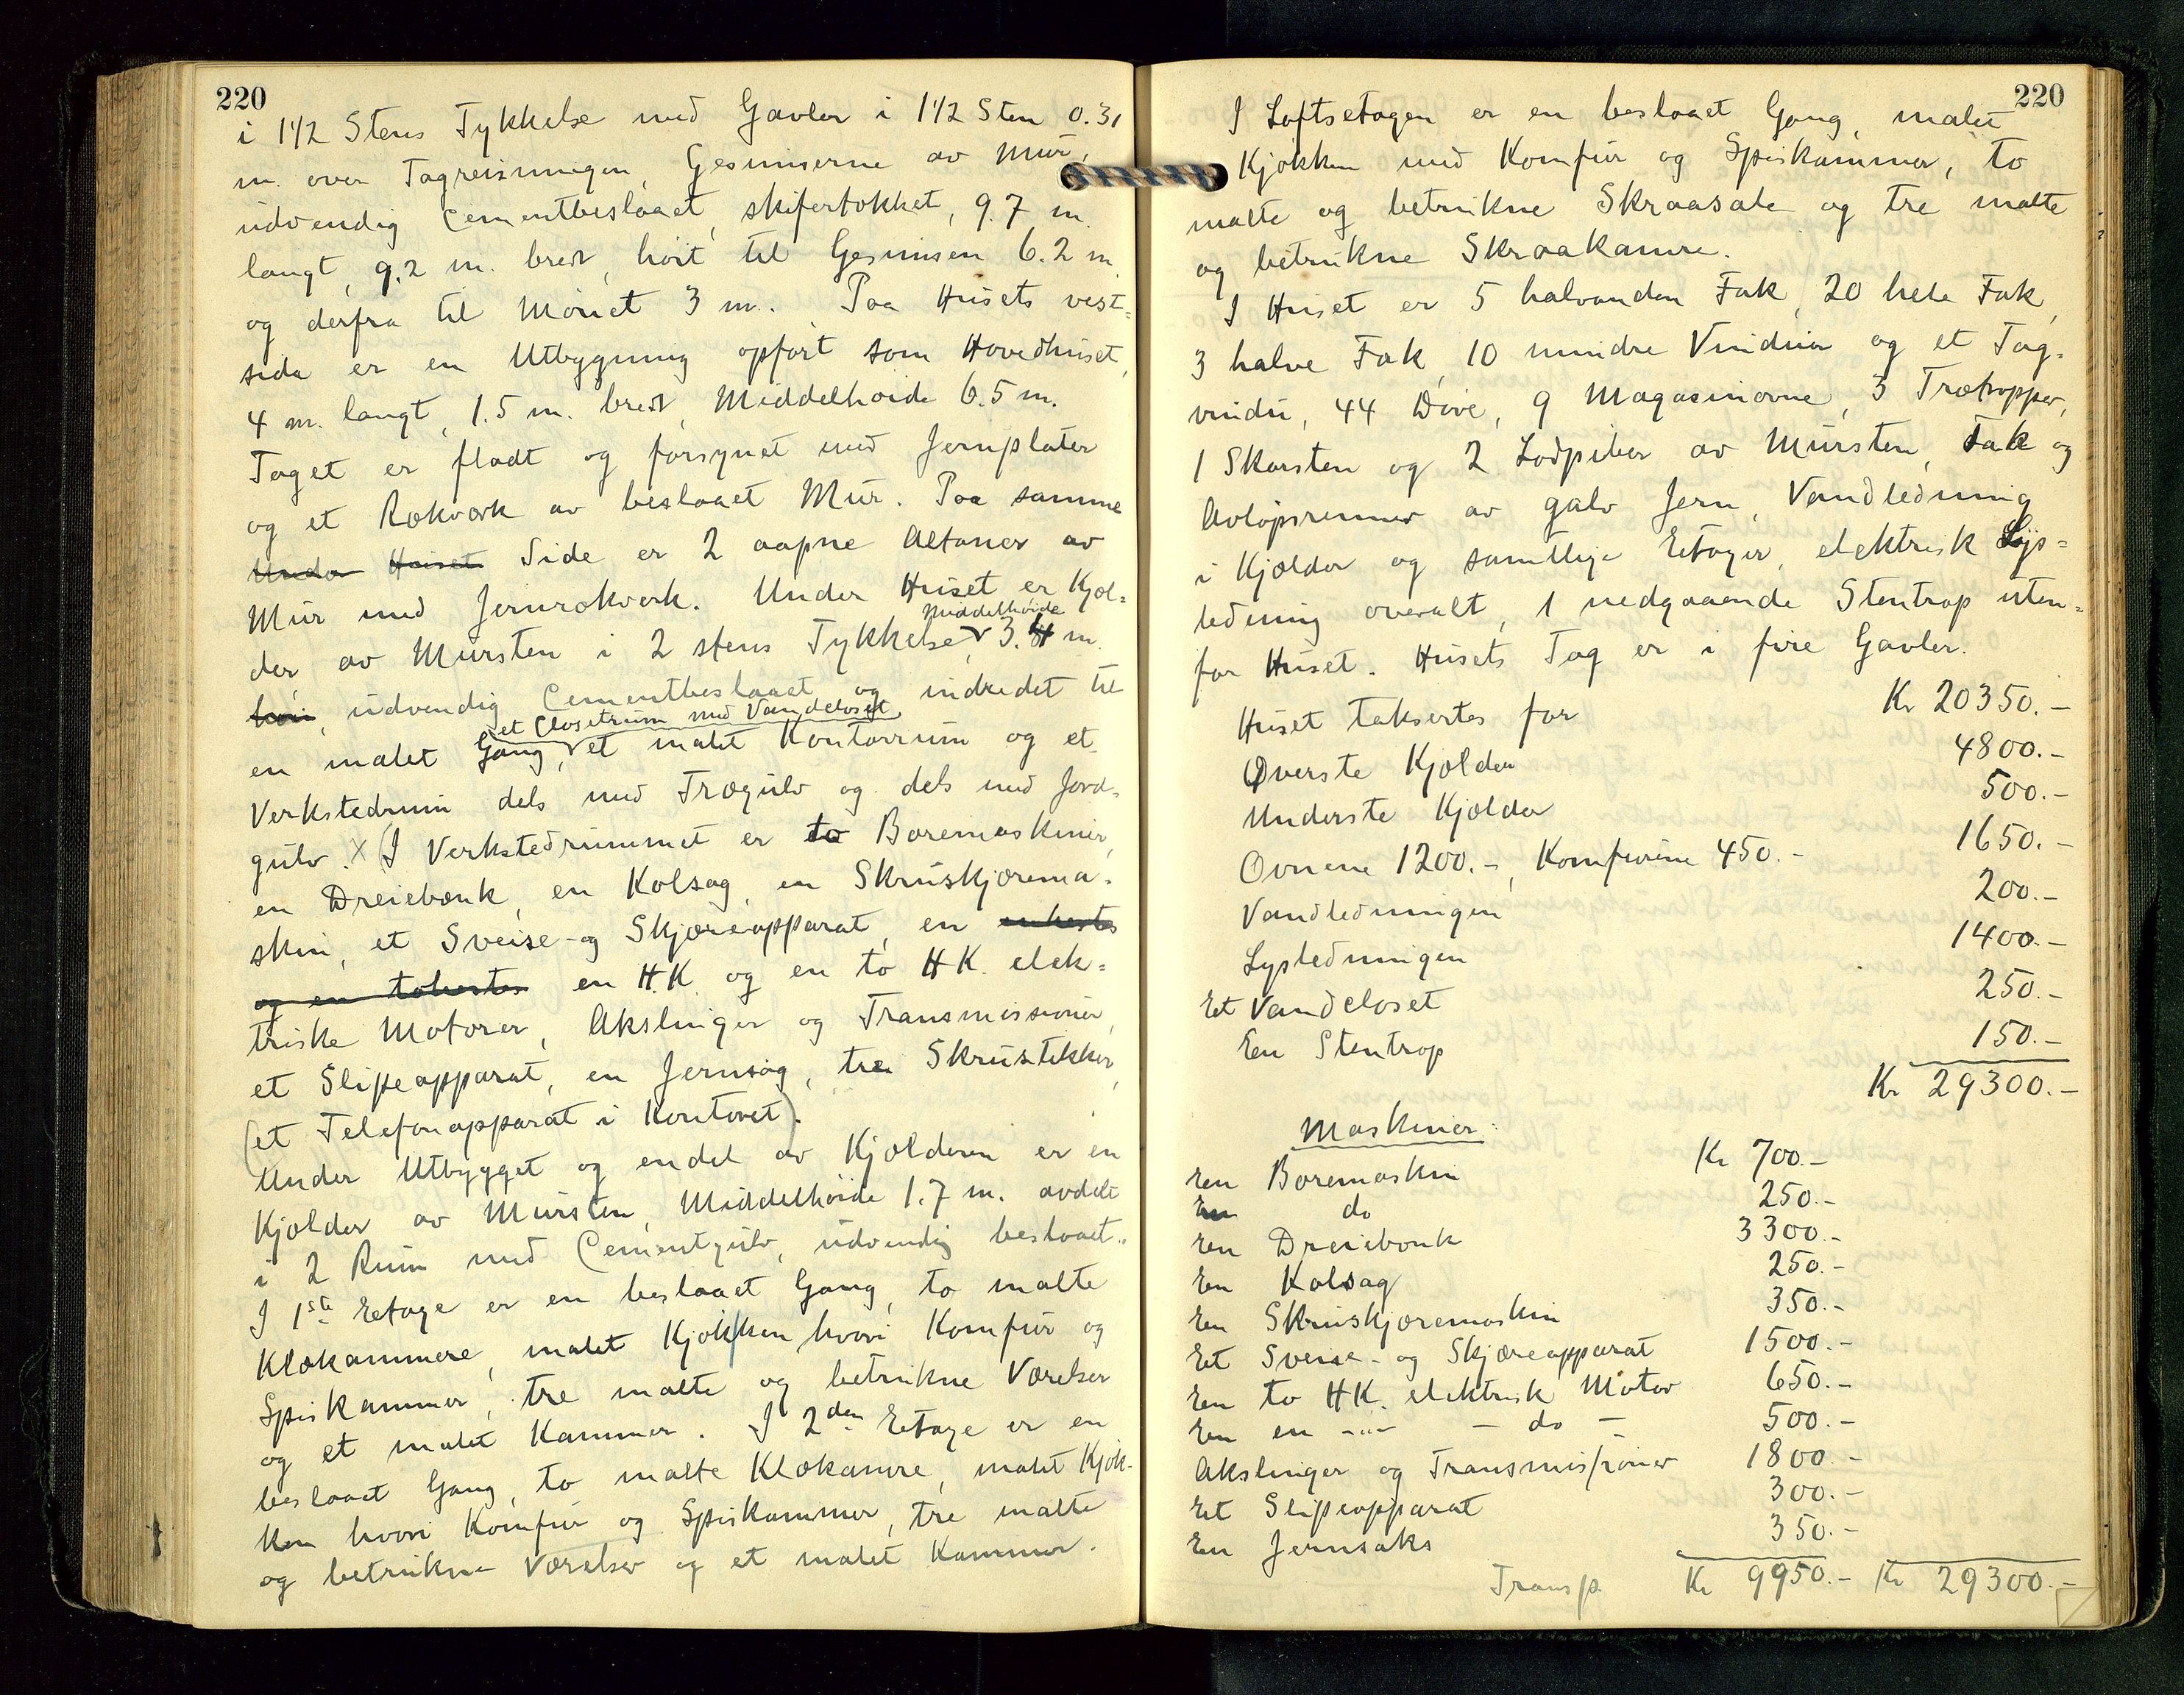 220
i 1 1/2 Stens Tykkelse med Gavler i 1 1/2 Sten 0.31
m. over Tagreisningen, Gesimserne av Mur,
udvendig Cementbeslaaet, skifertækket, 9.7 m.
langt, 9.2 m. bredt, höit til Gesimsen 6.2 m.
og derfra til Mönet 3 m. Paa Husets vest-
side er en Utbygning opført som Hovedhuset,
4 m. langt, 1.5 m. bredt, Middelhöide 6.5 m.
Taget er fladt og forsynet med Jernplater
og et Rækværk av beslaaet Mur. Paa samme
Under Huset Side er 2 aapne Altaner av
Mur med Jernrækverk. Under Huset er Kjæl-
Middelhöide
der av Mursten i 2 stens Tykkelse, 3. m.
höi, udvendig Cementbeslaaet og indredet til
et Closetrum med Vandcloset
en malet Gang, et malet Kontorrum og et
Verkstedrum dels med Trægulv og dels med Jord-
gulv. X (I Verkstedrummet er to Boremaskiner,
en Dreiebænk, en Kolsag, en Skruskjærema-
skin, et Sveise- og Skjæreapparat, en enhestes
og en tohestes en H.K. og en to H.K. elek-
triske Motorer, Akslinger og Transmissioner,
et Slipeapparat, en Jernsag, tre Skrustikker,
(et Telefonapparat i Kontoret).
Under Utbygget og endel av Kjælderen er en
Kjælder av Mursten, Middelhöide 1.7 m. avdelt
i 2 Rum med Cementgulv, udvendig beslaaet.
I 1ste Etage er en beslaaet Gang, to malte
Klækammere, malet Kjøkken hvori Komfur og
Spiskammer, tre malte og betrukne Værelser
og et malet Kammer. I 2den Etage er en
beslaaet Gang, to malte Klækamre, malet Kjøk-
ken hvori Komfur og Spiskammer, tre malte
og betrukne Værelser og et malet Kammer.
220
I Loftsetagen er en beslaaet Gang, malet
Kjøkken med Komfur og Spiskammer, to
malte og betrukne Skraasale og tre malte
og betrukne Skraakamre.
I Huset er 5 halvanden Fak, 20 hele Fak,
3 halve Fak, 10 mindre Vinduer og et Tag-
vindu, 44 Döre, 9 Magasinovne, 3 Trætrapper,
1 Skorsten og 2 Lodpiber av Mursten, Tak og
Avlöpsrenner av galv. Jern, Vandledning
i Kjælder og samtlige Etager, elektrisk Lys-
ledning overalt, 1 nedgaaende Stentrap uten-
for Huset. Husets Tag er i fire Gavler.
Huset taksertes for Kr 20350.-
Øverste Kjælder 4800.-
Underste Kjælder 500.-
Ovnene 1200.-, Komfurene 450.- 1650.-
Vandledningen 200.-
Lysledningen 1400.-
Et Vandcloset 250.-
En Stentrap 150.-
Kr 29300.-
Maskiner:
En Boremaskin Kr 700.-
En do 250.-
En Dreiebænk 3300.-
En Kolsag 250.-
En Skruskjæremaskin 350.-
Et Sveise- og Skjæreapparat 1500.-
En to H.K. elektrisk Motor 650.-
En en -"- - do - 500.-
Akslinger og Transmissioner 1800.-
Et Slipeapparat 300.-
En Jernsaks 350.-
Transp. Kr 9950.- Kr 29300.-